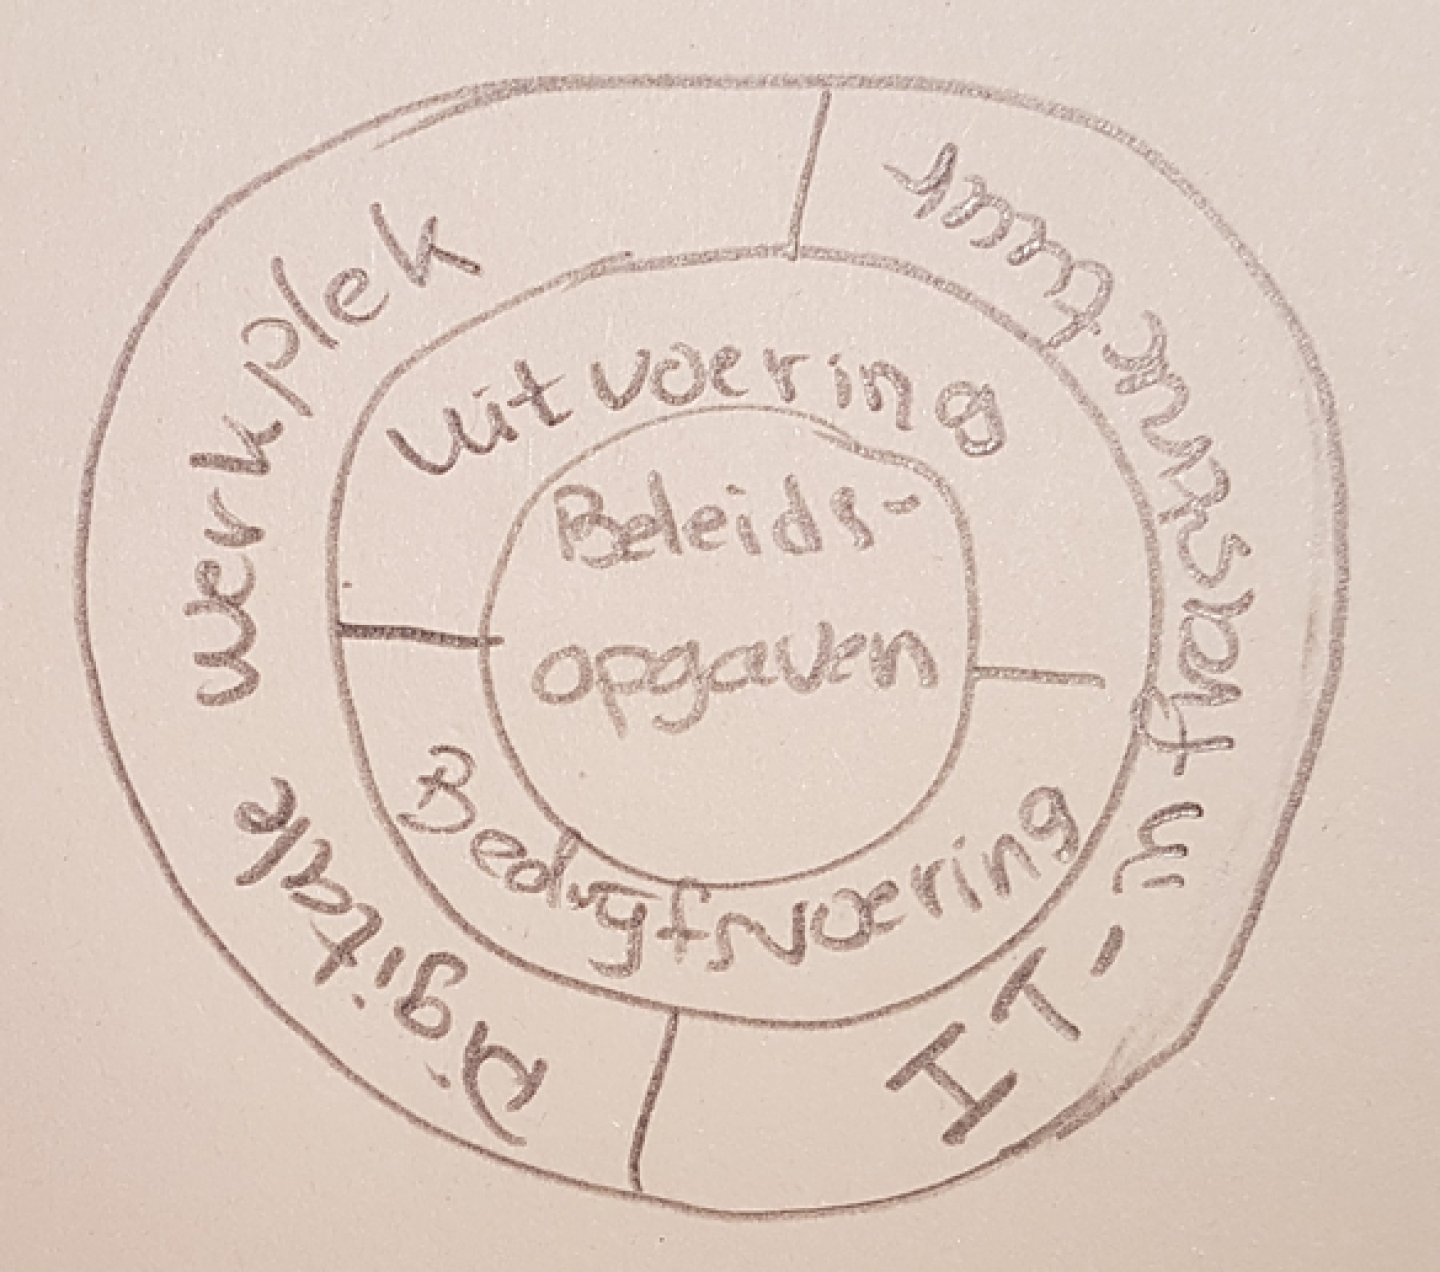 Beleids-
opgaven
Uitvoering
Bedrijfsvoering
Digitale werkplek
IT-infrastructuur